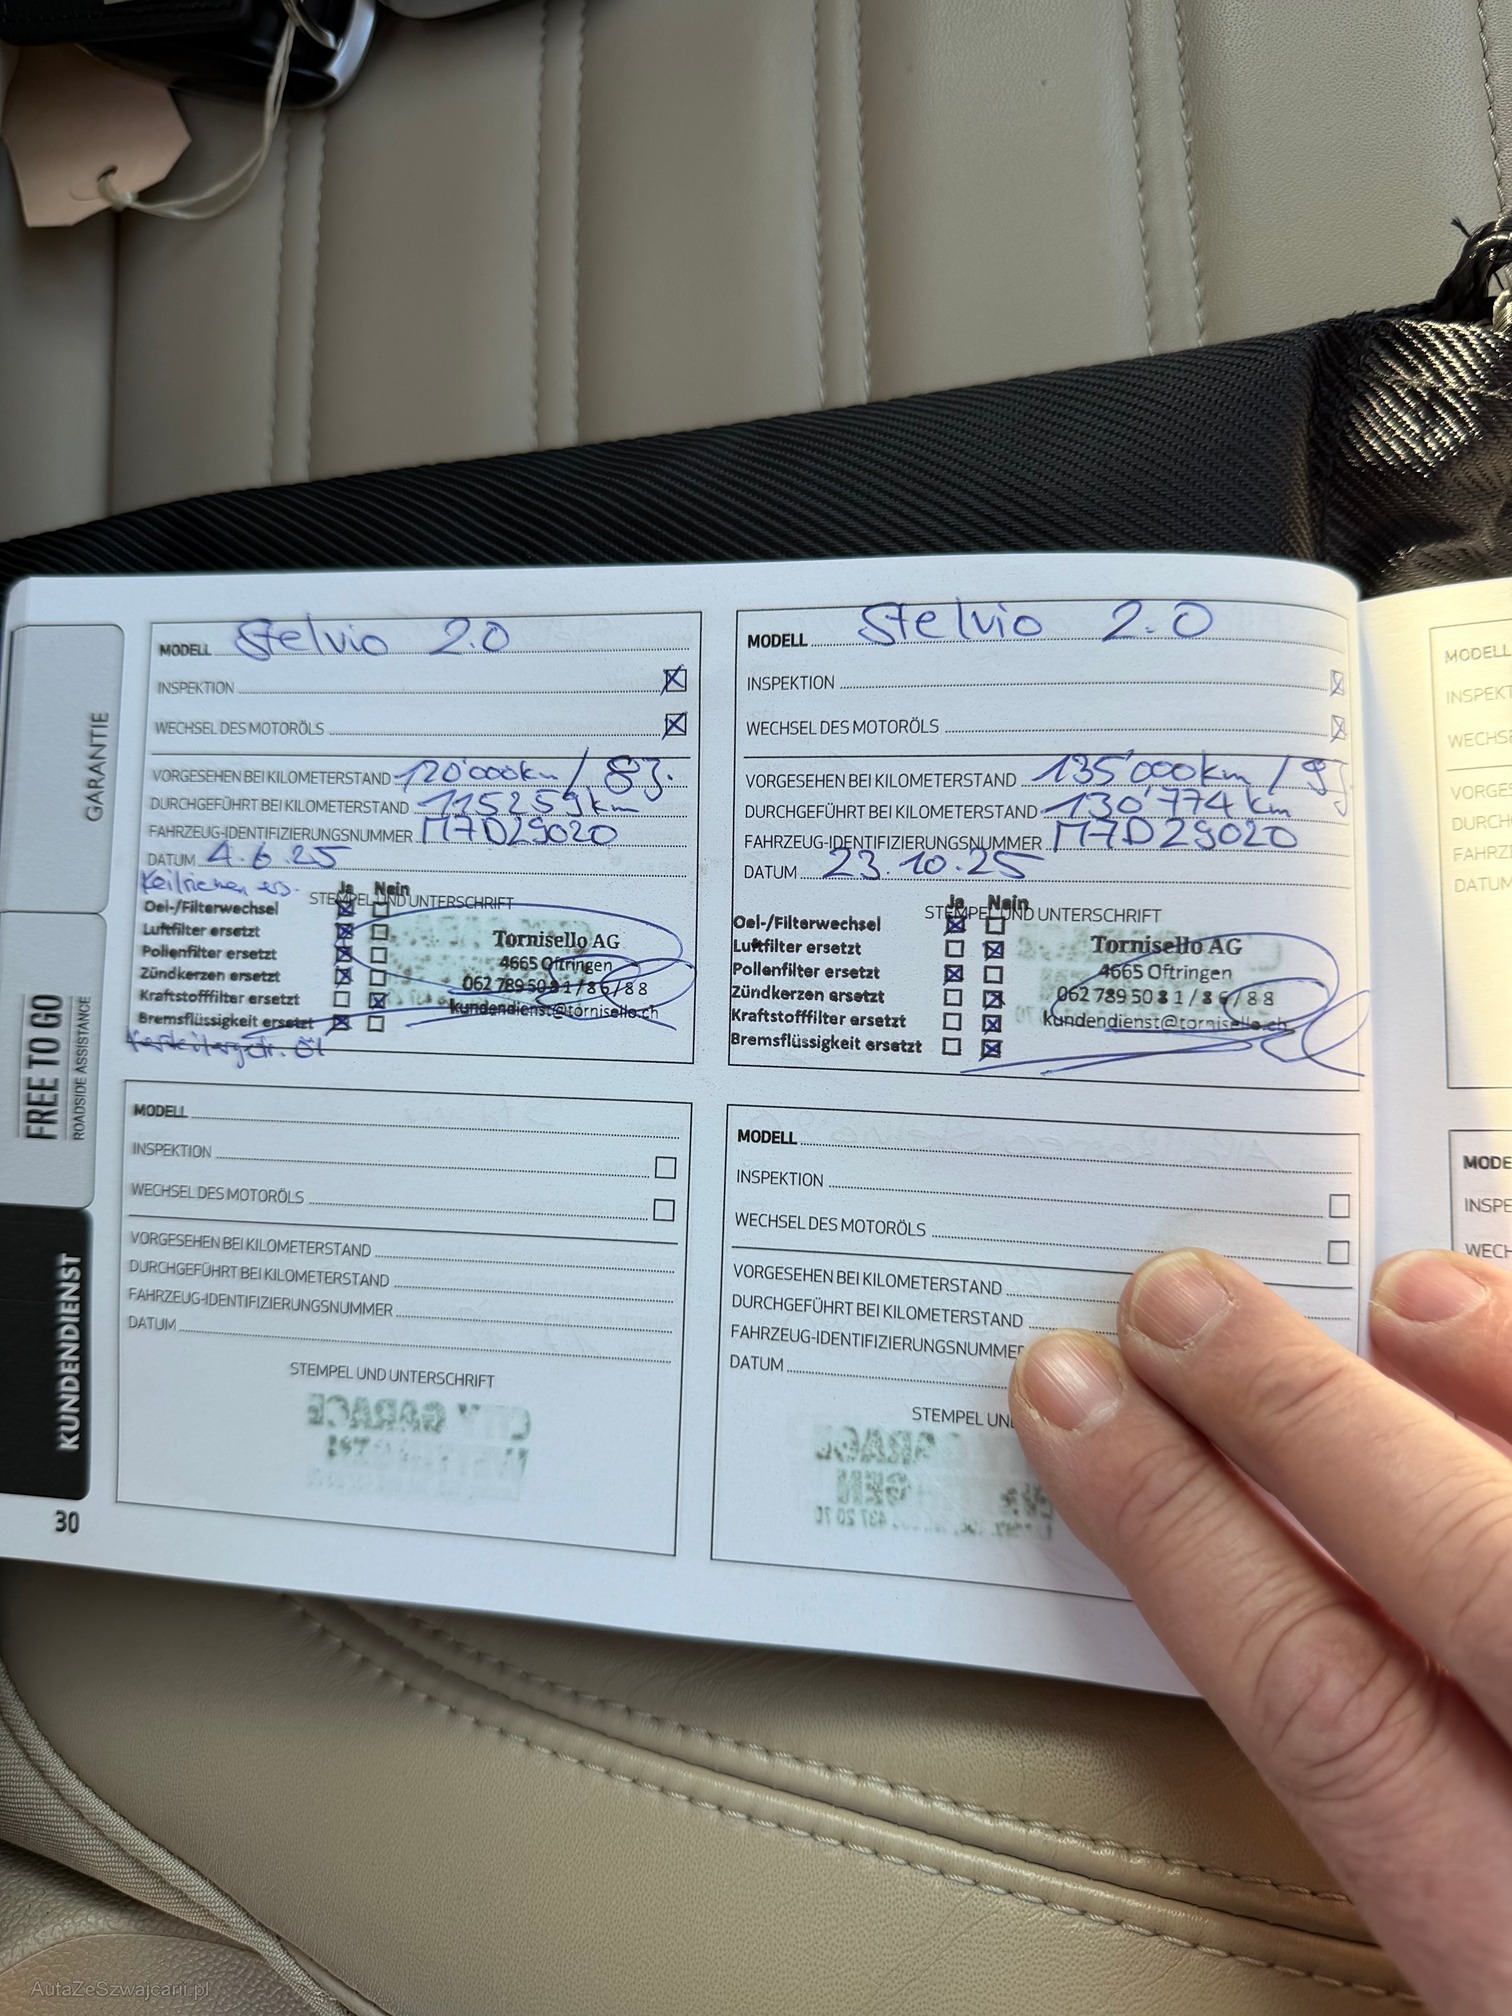 GARANTIE
FREE TO GO
ROADSIDE ASSISTANCE
KUNDENDIENST
30
MODELL Stelvio 2.0
INSPEKTION
WECHSEL DES MOTORÖLS
VORGESEHEN BEI KILOMETERSTAND 120'000km / 8J.
DURCHGEFÜHRT BEI KILOMETERSTAND 115259km
FAHRZEUG-IDENTIFIZIERUNGSNUMMER M7D29020
DATUM 4.6.25
Keilriemen ers.
STEMPEL UND UNTERSCHRIFT
Ja Nein
Oel-/Filterwechsel
Luftfilter ersetzt
Pollenfilter ersetzt
Zündkerzen ersetzt
Kraftstofffilter ersetzt
Bremsflüssigkeit ersetzt
Tornisello AG
4665 Oftringen
062 789 50 81 / 86 / 88
kundendienst@tornisello.ch
MODELL Stelvio 2.0
INSPEKTION
WECHSEL DES MOTORÖLS
VORGESEHEN BEI KILOMETERSTAND 135'000km / 9J
DURCHGEFÜHRT BEI KILOMETERSTAND 130'774km
FAHRZEUG-IDENTIFIZIERUNGSNUMMER M7D29020
DATUM 23.10.25
STEMPEL UND UNTERSCHRIFT
Ja Nein
Oel-/Filterwechsel
Luftfilter ersetzt
Pollenfilter ersetzt
Zündkerzen ersetzt
Kraftstofffilter ersetzt
Bremsflüssigkeit ersetzt
Tornisello AG
4665 Oftringen
062 789 50 81 / 86 / 88
kundendienst@tornisello.ch
MODELL
INSPEKTION
WECHSEL DES MOTORÖLS
VORGESEHEN BEI KILOMETERSTAND
DURCHGEFÜHRT BEI KILOMETERSTAND
FAHRZEUG-IDENTIFIZIERUNGSNUMMER
DATUM
STEMPEL UND UNTERSCHRIFT
CITY GARAGE
MODELL
INSPEKTION
WECHSEL DES MOTORÖLS
VORGESEHEN BEI KILOMETERSTAND
DURCHGEFÜHRT BEI KILOMETERSTAND
FAHRZEUG-IDENTIFIZIERUNGSNUMME
DATUM
STEMPEL UN
MODELL
INSPEKT
WECHSE
VORGES
DURCH
FAHRZ
DATUM
MODE
INSPE
WECH
AutaZeSzwajcarii.pl